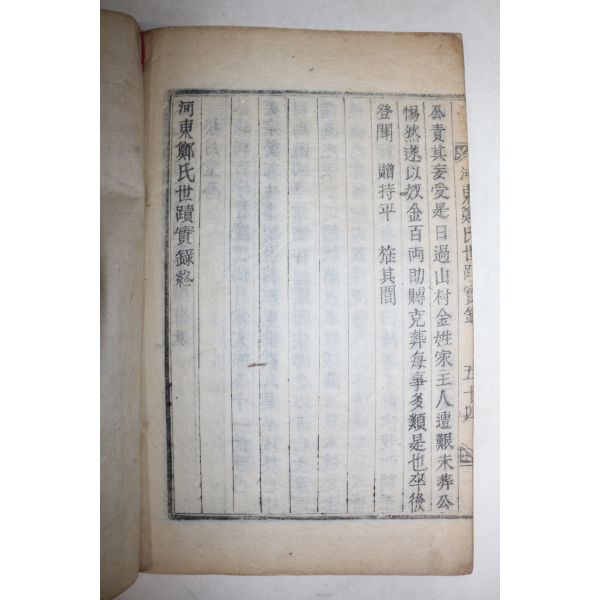 河東鄭氏世蹟實錄 五十四
公責其妄受是日過山村金姓家主人遭艱未葬公
惕然遂以奴金百両助賻克葬每事多類是也卒後
登聞 贈持平 旌其閭
河東鄭氏世蹟實錄終